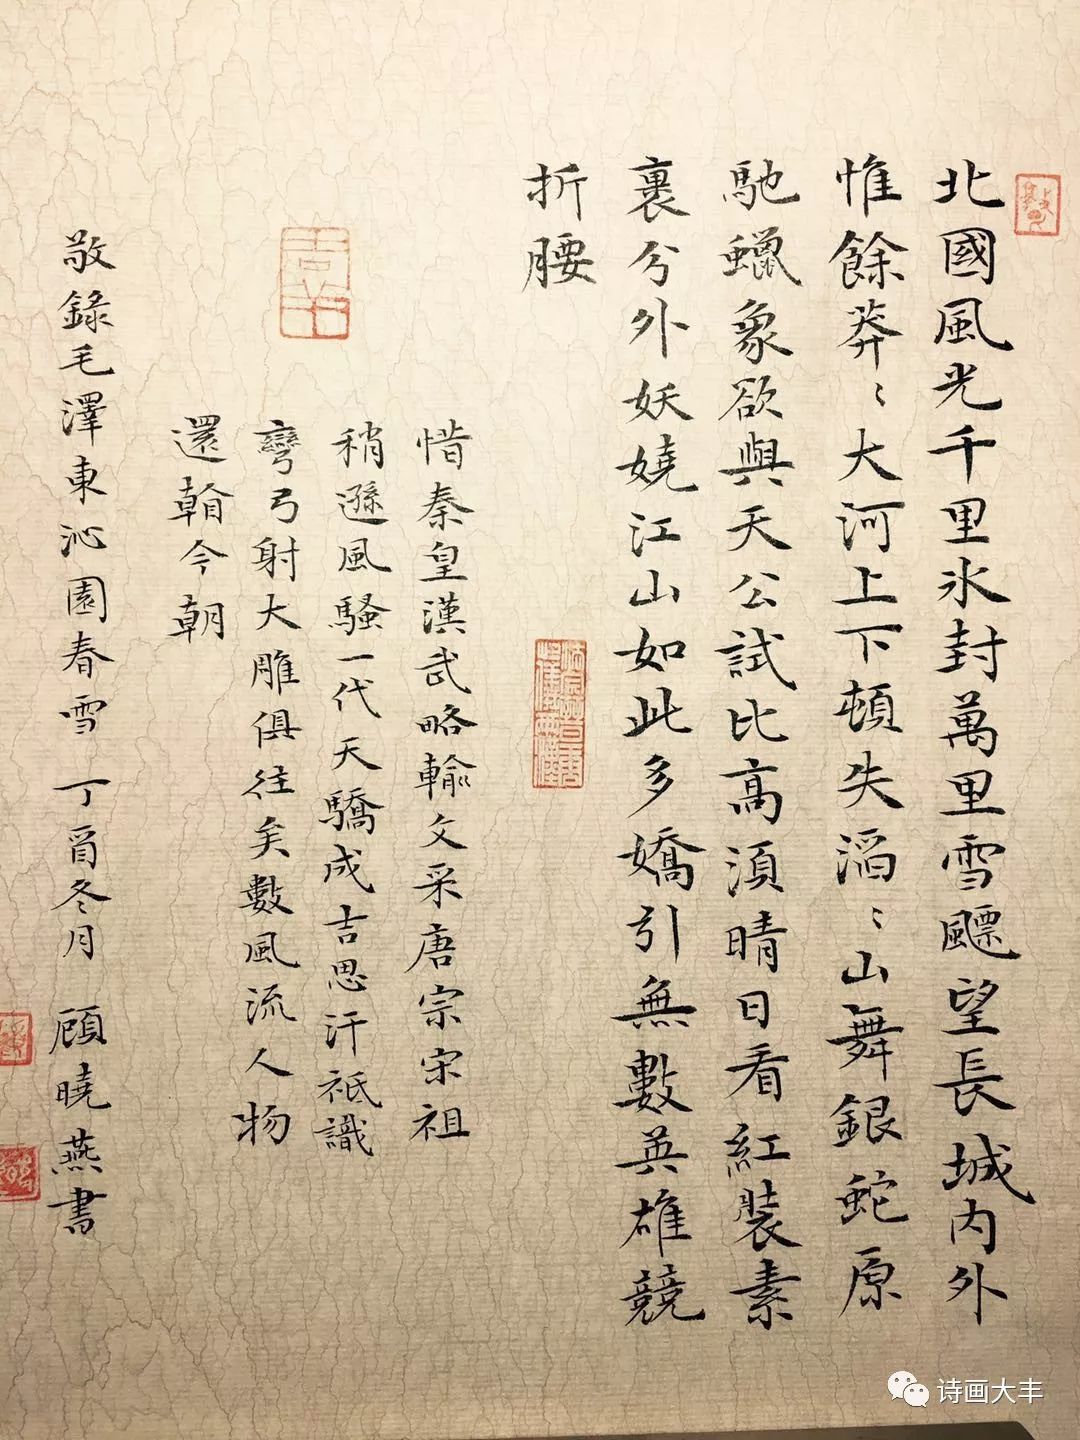 北國風光千里氷封萬里雪飃望長城內外
惟餘莽〻大河上下頓失滔〻山舞銀蛇原
馳蠟象欲與天公試比高須晴日看紅裝素
裹兮外妖嬈江山如此多嬌引無數英雄競
折腰
惜秦皇漢武略輸文采唐宗宋祖
稍遜風騷一代天驕成吉思汗袛識
彎弓射大雕俱往矣數風流人物
還看今朝
敬錄毛澤東沁園春雪 丁酉冬月 顧曉燕書
诗画大丰